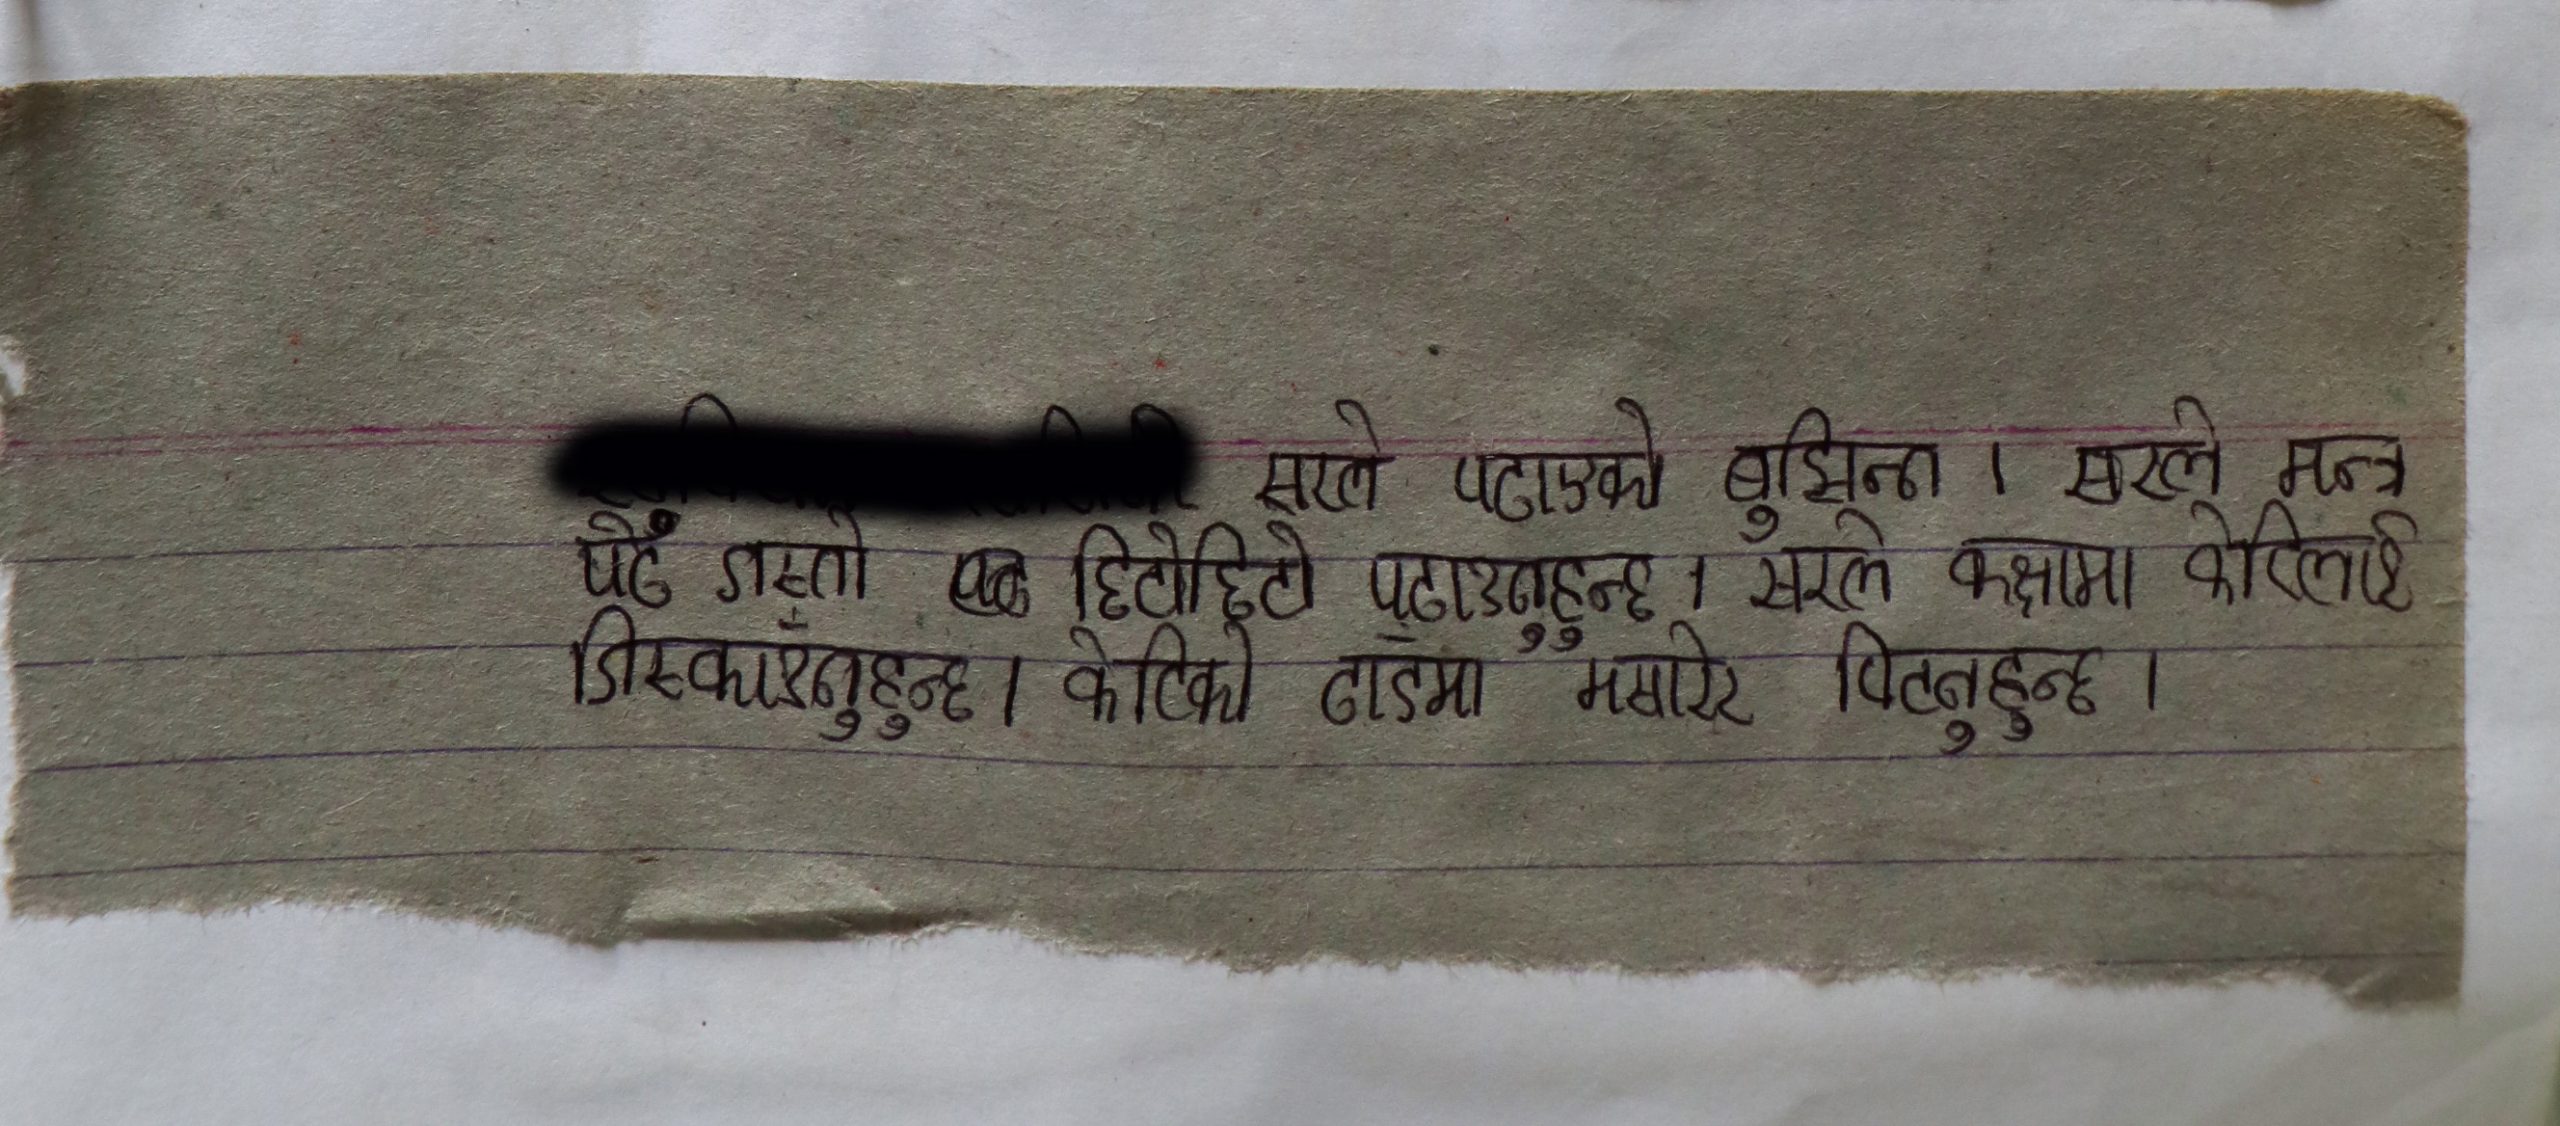 सरले पढाएको बुझिन्न । सरले मन्त्र
पढेँ जस्तो हिटोहिटो पढाउनुहुन्छ । सरले कक्षामा केटिलाई
जिस्काउनुहुन्छ । केटिको ढाडमा मसारेर पिटनुहुन्छ ।